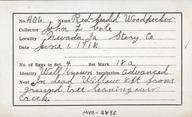 No. 406 Name Red-headed Woodpecker
Collector John L. Cole
Locality Nevada, Ia Story Co
Date June 1, 1918.
No. of Eggs in Set 4 Set Mark 18a
Identity Well Known Incubation Advanced
Nest In dead Willow 8ft from
ground tree leaning over
Creek.
MVZ-8895